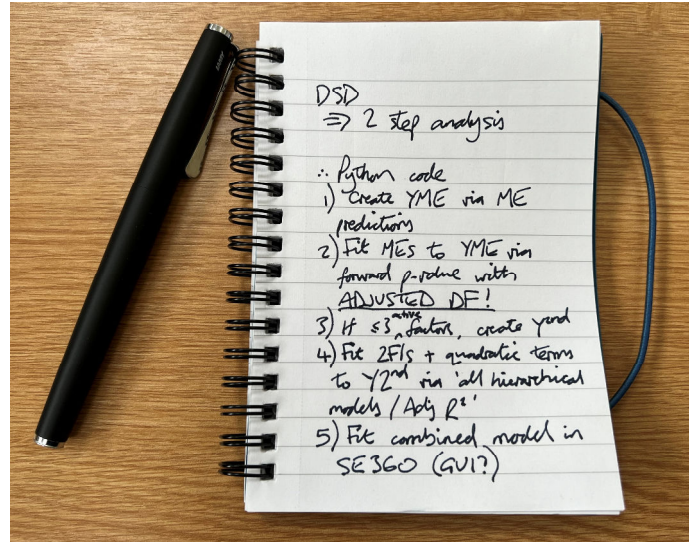 DSD
⇒ 2 step analysis
∴ Python code
1) Create YME via ME
predictions
2) Fit MEs to YME via
forward p-value with
ADJUSTED DF!
3) If ≤3 active factors, create Y2nd
4) Fit 2FIs + quadratic terms
to Y2nd via 'all hierarchical
models / Adj R²'
5) Fit combined model in
SE360 (GUI?)